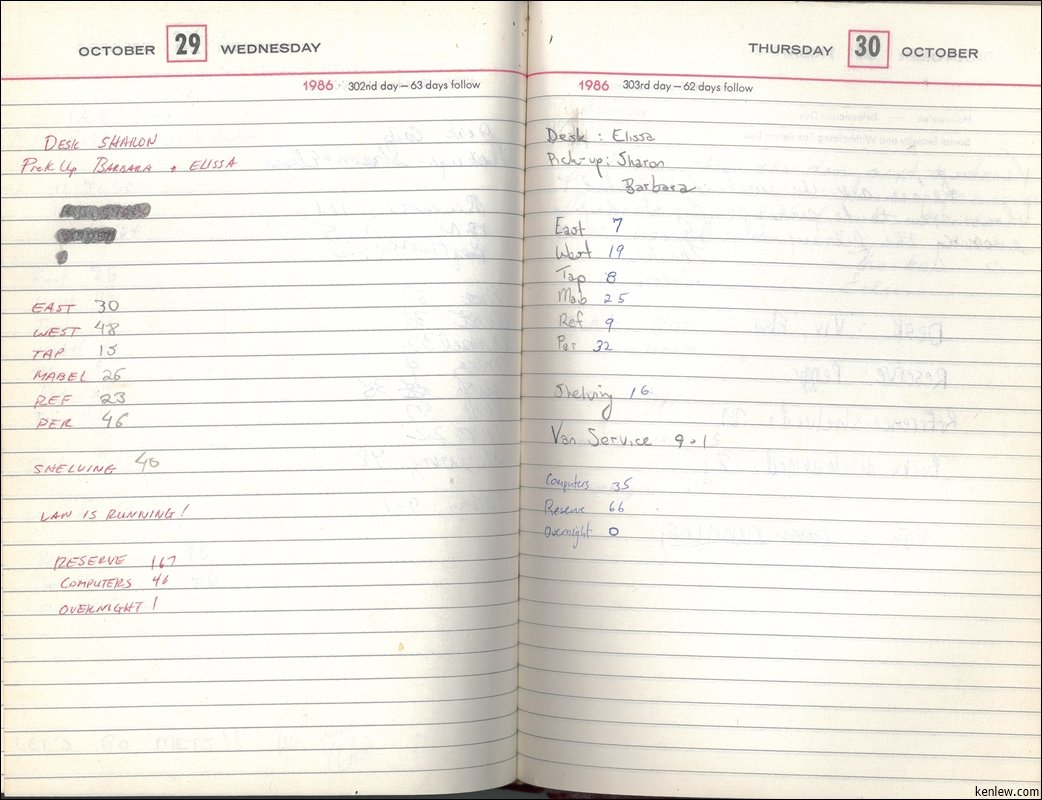 OCTOBER 29 WEDNESDAY
1986 302nd day — 63 days follow
DESK SHARON
PICK UP BARBARA + ELISSA
EAST 30
WEST 48
TAP 15
MABEL 26
REF 23
PER 46
SHELVING 40
LAN IS RUNNING!
RESERVE 167
COMPUTERS 46
OVERNIGHT 1
THURSDAY 30 OCTOBER
1986 303rd day — 62 days follow
Desk : Elissa
Pick-up: Sharon
Barbara
East 7
West 19
Tap 8
Mab 25
Ref 9
Per 32
Shelving 16
Van Service 9-1
Computers 35
Reserve 66
Overnight 0
kenlew.com